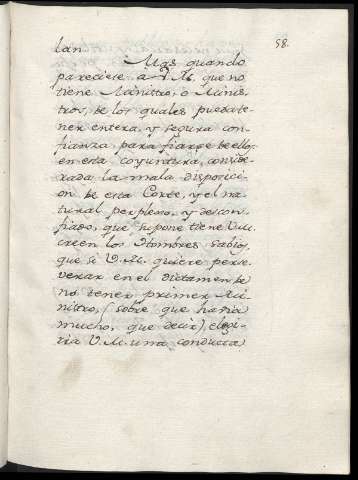 58.
lan
Mas quando
pareciese a V.M. que no
tiene Ministro, o Minis-
tros, de los quales pueda te-
ner entera, y segura con-
fianza para fiarse de ellos
en esta coyuntura, conside-
rada la mala disposici-
on de esta Corte, y el na-
tural perplexo, y descon-
fiado, que supone tiene V.M.
creen los Hombres sabios,
que si V.M. quiere perse-
verar en el dictamen de
no tener primer Mi-
nistro, (sobre que havia
mucho, que decir) elegi-
ria V.M. una conducta